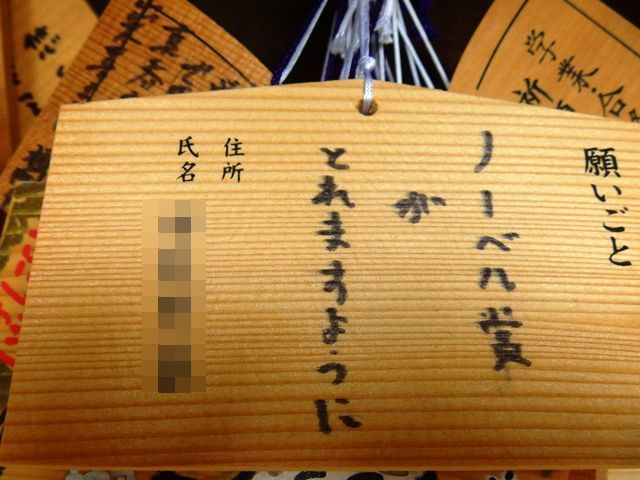 願いごと
ノーベル賞
が
とれますように
住所
氏名
学業
合
祈